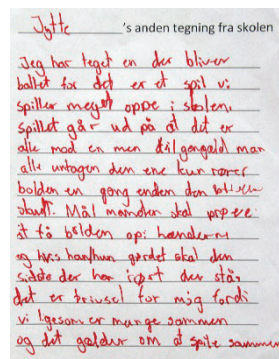 Jytte 's anden tegning fra skolen
Jeg har teget en der bliver
ballet for det er et spil vi
spiller meget oppe i skolen.
spillet går ud på at det er
alle mod en men til gengald man
alle untagen den ene kun rører
bolden en gang enden den bliver
skudt. Mål manden skal prøve
at få bolden op i hænderne
og hvis han/hun gør det skal den
sidste der har rørt den stå,
det er trivsel for mig fordi
vi ligesom er mange sammen
og det galdur om at spile sammen